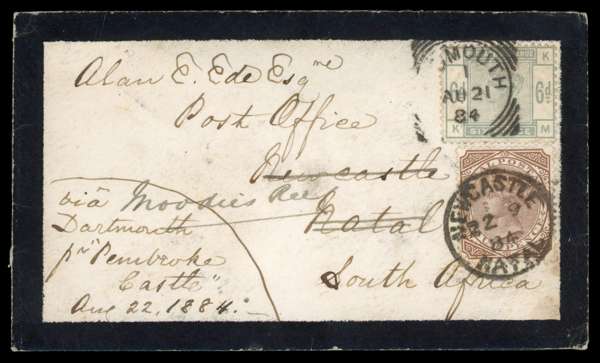 Alan E. Ede Esqre
Post Office
Newcastle
Natal
South Africa
via Moodies
Dartmouth
pr "Pembroke
Castle"
Aug 22, 1884.
MOUTH
1
AU 21
84
6d
K
K M
NEWCASTLE
NATAL